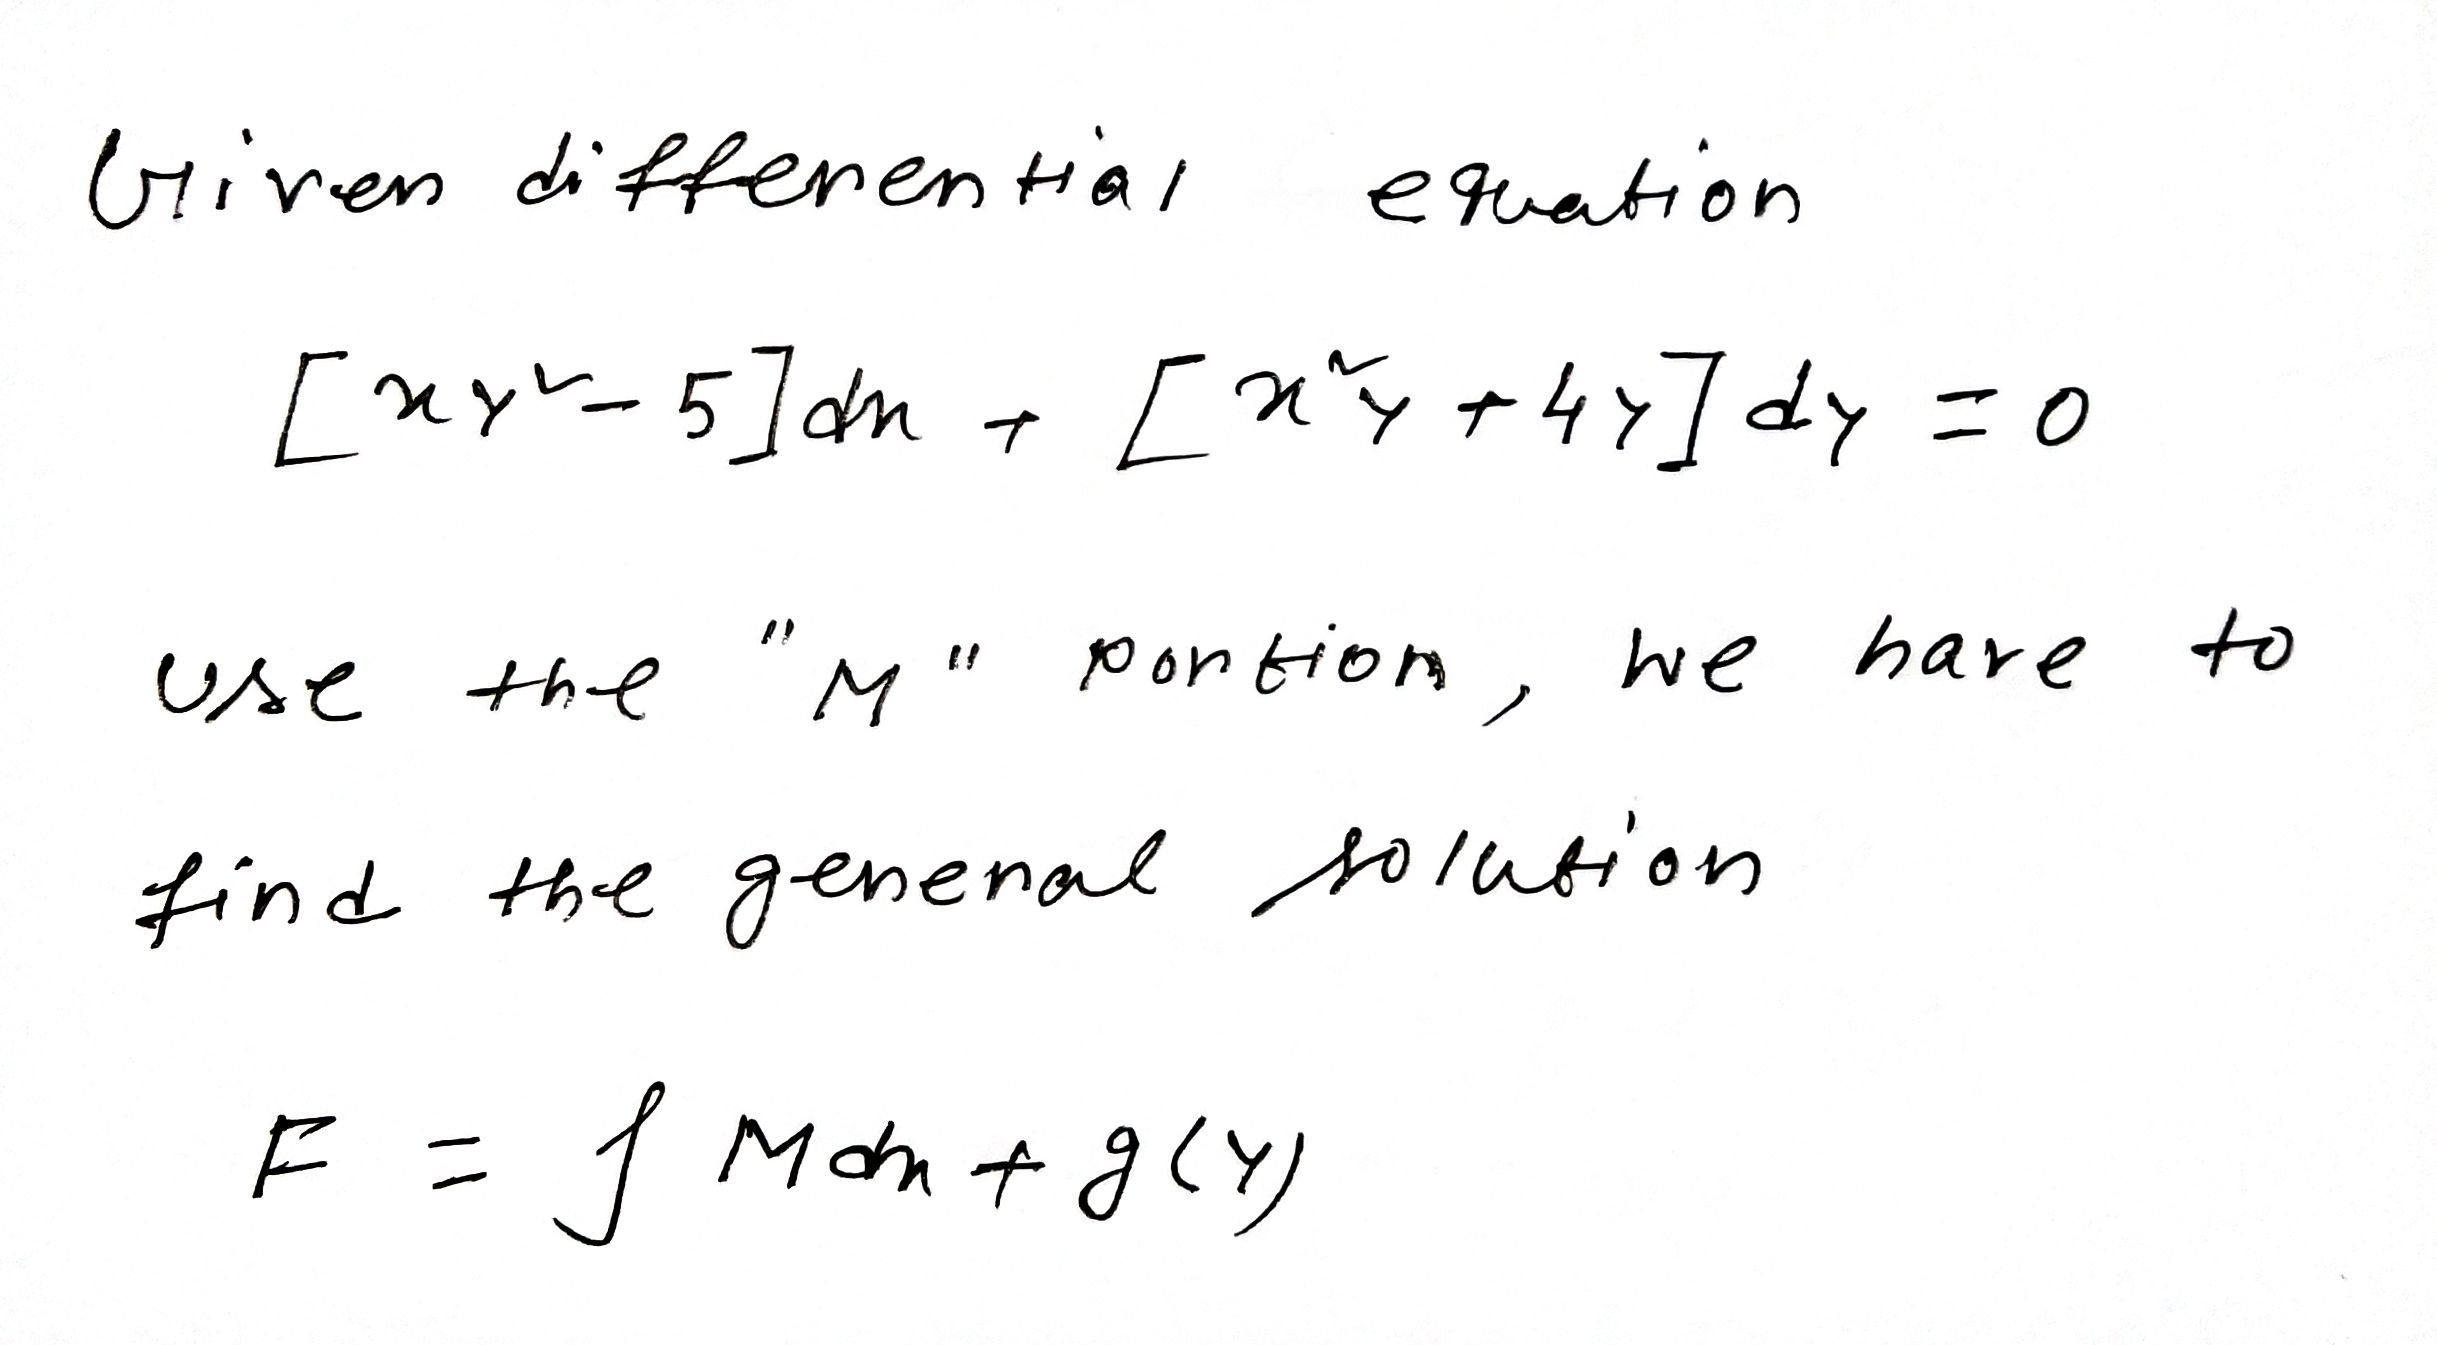 Given differential equation
[xy²-5]dx + [x²y+4y]dy = 0
Use the "M" portion, we have to
find the general solution
F = ∫ Mdx + g(y)